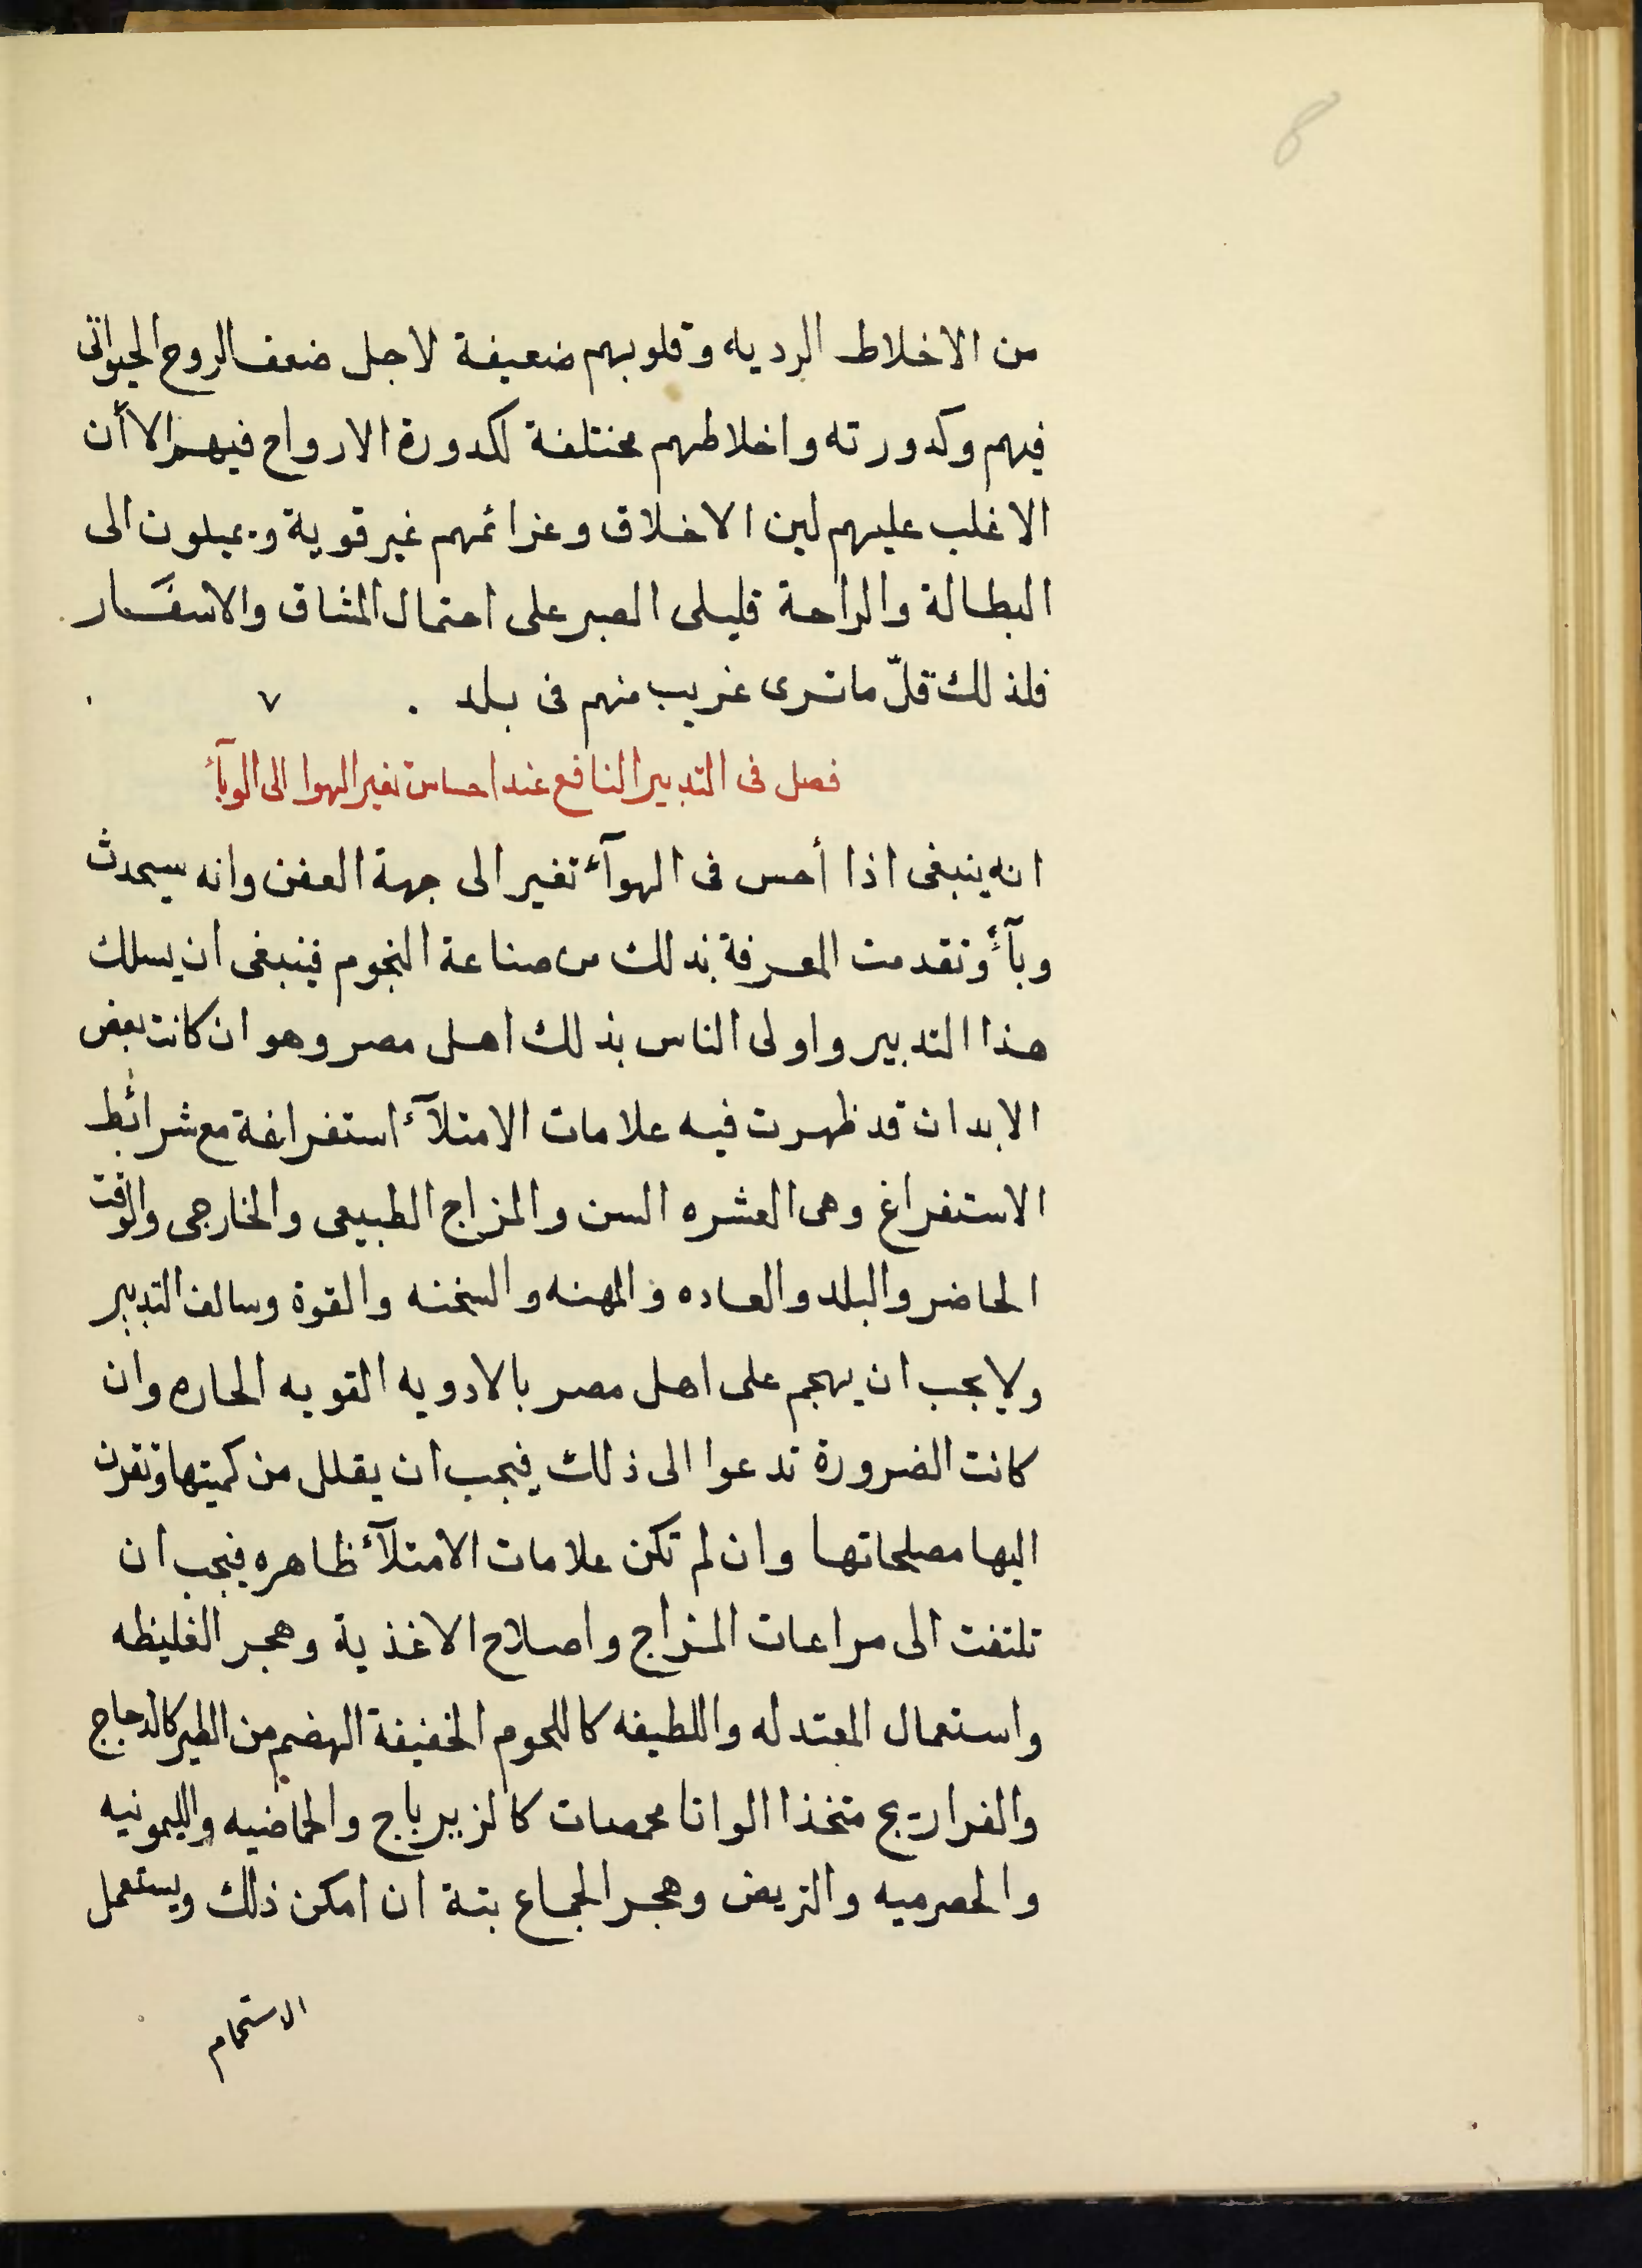 8
من الاخلاط الرديه وقلوبهم ضعيفة لاجل ضعف الروح الحيوانى
فيهم وكدورته واخلاطهم مختلفة لكدورة الارواح فيهم الا أن
الاغلب عليهم لين الاخلاق وعزائمهم غير قوية ويميلون الى
البطالة والراحة قليلى الصبر على احتمال المشاق والاسفار
فلذلك قلّ ما ترى غريب منهم فى بلد . ٧
فصل فى التدبير النافع عند احساس تغير الهوا الى الوبآء
انه ينبغى اذا أحس فى الهوآء تغير الى جهة العفن وانه سيحدث
وبآء وتقدمت المعرفة بذلك من صناعة النجوم فينبغى ان يسلك
هذا التدبير واولى الناس بذلك اهل مصر وهو ان كانت بعض
الابدان قد ظهرت فيه علامات الامتلآء استفراغة مع شرائط
الاستفراغ وهى العشره السن والمزاج الطبيعى والخارجى والوقت
الحاضر والبلد والعاده والمهنه والسخنه والقوة وسالف التدبير
ولا يجب ان يهجم على اهل مصر بالادويه القويه الحاره وان
كانت الضرورة تدعوا الى ذلك فيجب ان يقلل من كميتها وتقرن
اليها مصلحاتها وان لم تكن علامات الامتلآء ظاهره فيجب ان
تلتفت الى مراعات المزاج واصلاح الاغذية وهجر الغليظه
واستعمال المعتدله واللطيفه كاللحوم الخفيفة الهضم من الطير كالدجاج
والفراريج متخذا الوانا محمصات كالزيرباج والحماضيه والليمونيه
والحصرميه والتريض وهجر الجماع بتة ان امكن ذلك ويستعمل
الاستحمام